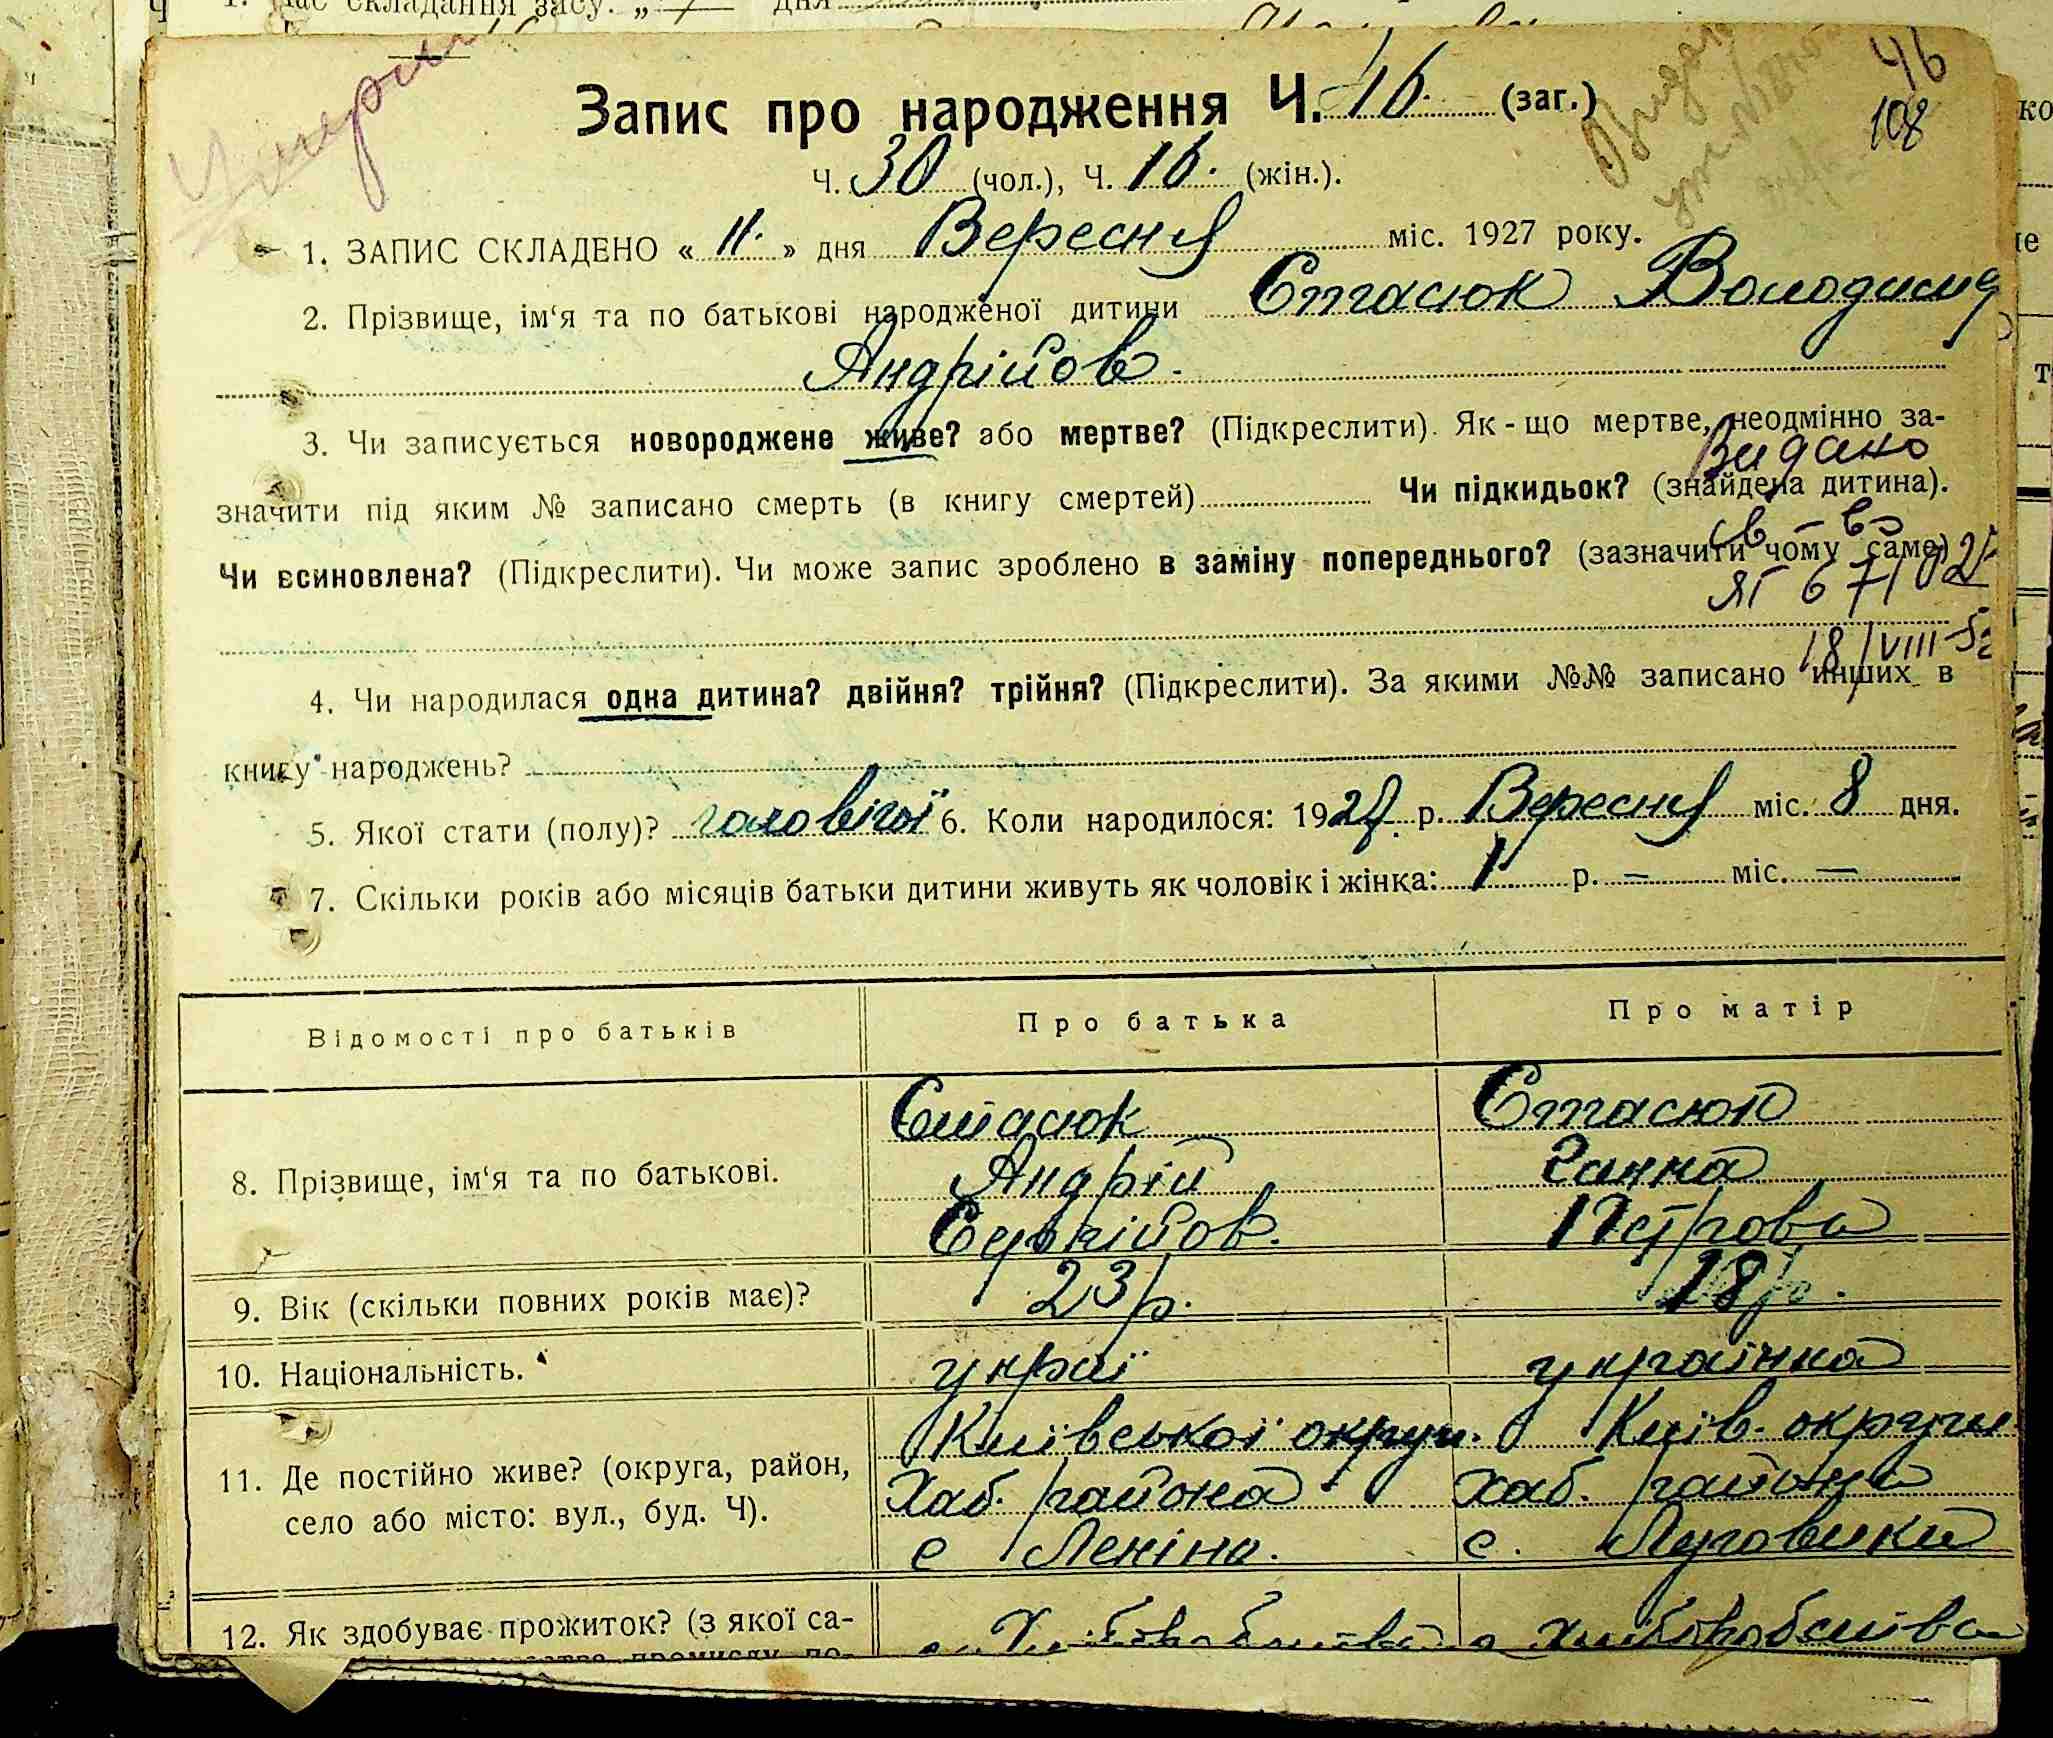 Запис про народження Ч. 16. (заг.)
46
108
Ч. 30 (чол.), Ч. 16. (жін.).
1. ЗАПИС СКЛАДЕНО « 11. » дня Вересня міс. 1927 року.
2. Прізвище, ім‘я та по батькові народженої дитини Стасюк Володимир
Андрійов.
3. Чи записується новороджене живе? або мертве? (Підкреслити). Як-що мертве, неодмінно за-
Видано
значити під яким № записано смерть (в книгу смертей) Чи підкидьок? (знайдена дитина).
св-во
Чи всиновлена? (Підкреслити). Чи може запис зроблено в заміну попереднього? (зазначити чому саме)
18/VIII-52
4. Чи народилася одна дитина? двійня? трійня? (Підкреслити). За якими №№ записано инших в
книгу народжень?
5. Якої стати (полу)? чоловічої 6. Коли народилося: 1927 р. Вересня міс. 8 дня.
7. Скільки років або місяців батьки дитини живуть як чоловік і жінка: 1 р. – міс. —
Відомості про батьків Про батька Про матір
Стасюк Стасюк
8. Прізвище, ім‘я та по батькові. Андрій Ганна
Петрова
9. Вік (скільки повних років має)? 23 р. 18 р.
10. Національність. украї українка
Київської округи. Київ. округи
11. Де постійно живе? (округа, район, Хаб. района Хаб. района
село або місто: вул., буд. Ч). с Леніна. с. Луговики
12. Як здобуває прожиток? (з якої са- Хліборобства Хліборобства